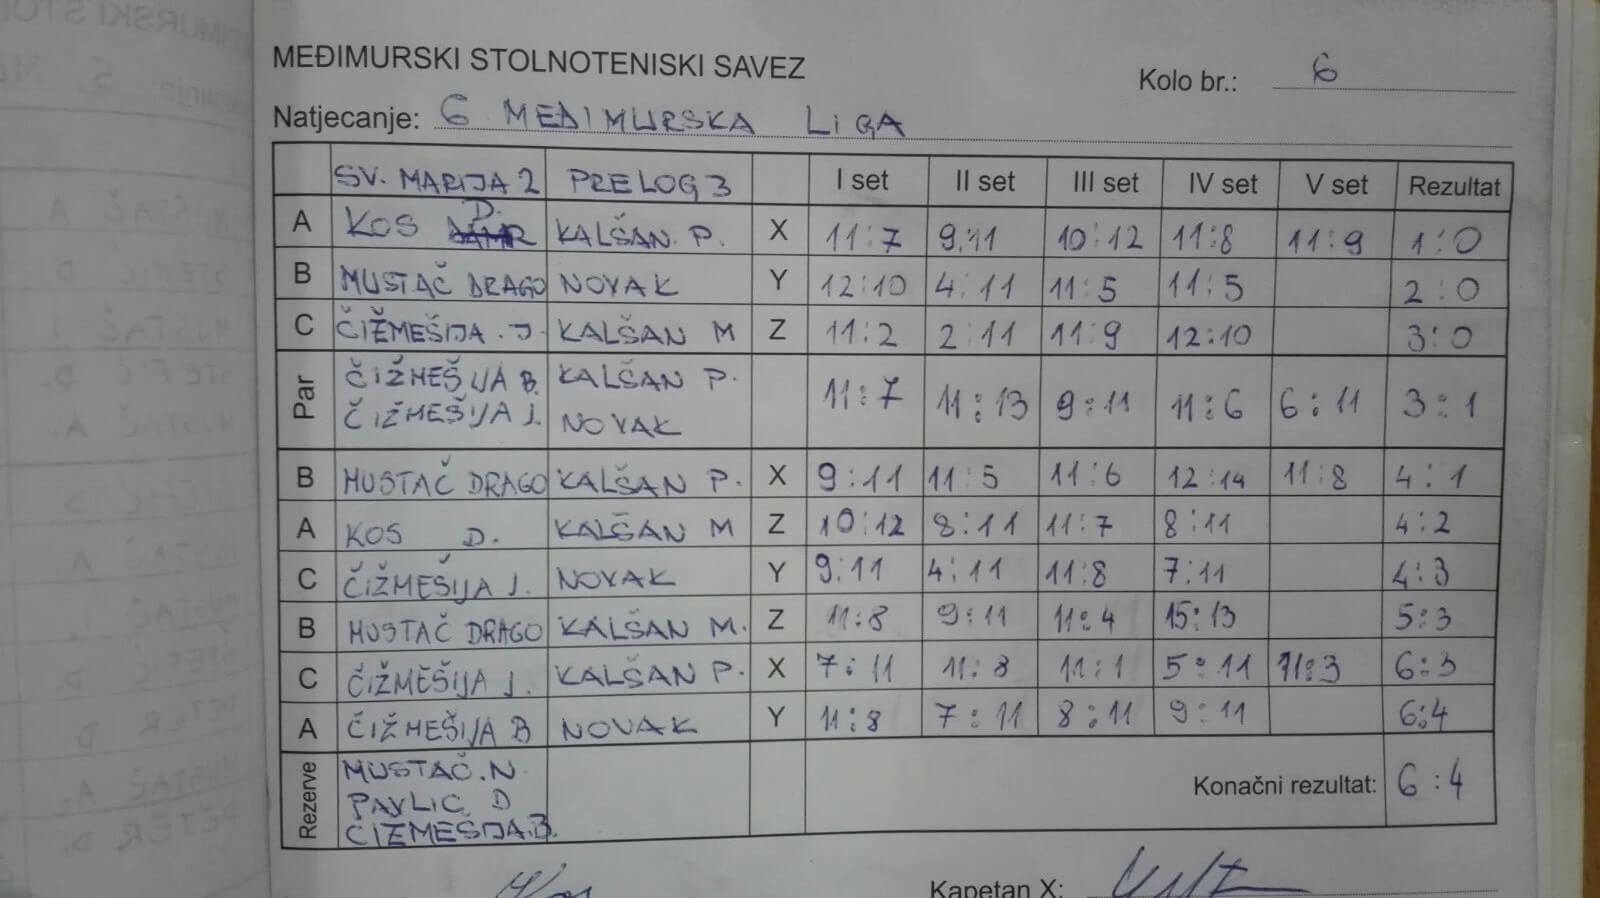 MEĐIMURSKI STOLNOTENISKI SAVEZ
Kolo br.: 6
Natjecanje: 6 MEĐIMURSKA LIGA
SV. MARIJA 2 PRELOG 3 I set II set III set IV set V set Rezultat
A KOS D. KALŠAN P. X 11:7 9:11 10:12 11:8 11:9 1:0
B MUSTAČ DRAGO NOVAK Y 12:10 4:11 11:5 11:5 2:0
C ČIŽMEŠIJA . J. KALŠAN M Z 11:2 2:11 11:9 12:10 3:0
Par ČIŽMEŠIJA B. KALŠAN P. 11:7 11:13 9:11 11:6 6:11 3:1
ČIŽMEŠIJA J. NOVAK
B MUSTAČ DRAGO KALŠAN P. X 9:11 11:5 11:6 12:14 11:8 4:1
A KOS D. KALŠAN M Z 10:12 8:11 11:7 8:11 4:2
C ČIŽMEŠIJA J. NOVAK Y 9:11 4:11 11:8 7:11 4:3
B MUSTAČ DRAGO KALŠAN M. Z 11:8 9:11 11:4 15:13 5:3
C ČIŽMEŠIJA J. KALŠAN P. X 7:11 11:8 11:1 5:11 11:3 6:3
A ČIŽMEŠIJA B NOVAK Y 11:8 7:11 8:11 9:11 6:4
Rezerve MUSTAČ. N
PAVLIC D
ČIŽMEŠIJA.B.
Konačni rezultat: 6:4
Kapetan X: